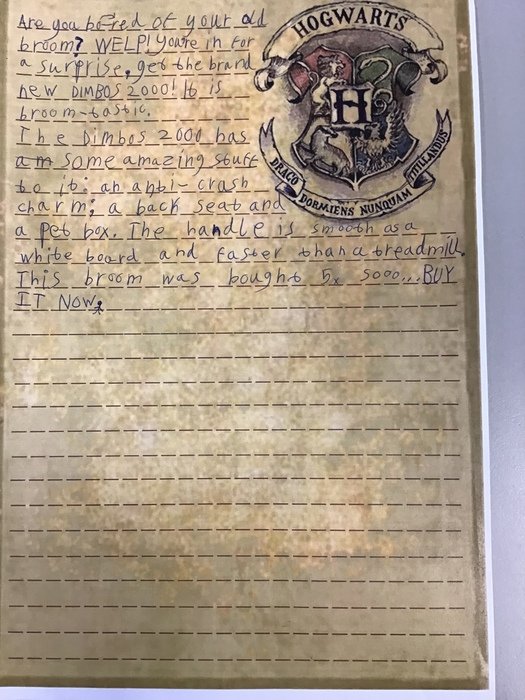 HOGWARTS
H
DRACO DORMIENS NUNQUAM TITILLANDUS
Are you bored of your old
broom? WELP! You're in for
a surprise, get the brand
new DIMBOS 2000! It is
broom-tastic.
The Dimbos 2000 has
am some amazing stuff
to it: an anti-crash
charm; a back seat and
a pet box. The handle is smooth as a
white board and faster than a treadmill.
This broom was bought 5x 5000...BUY
IT NOW!